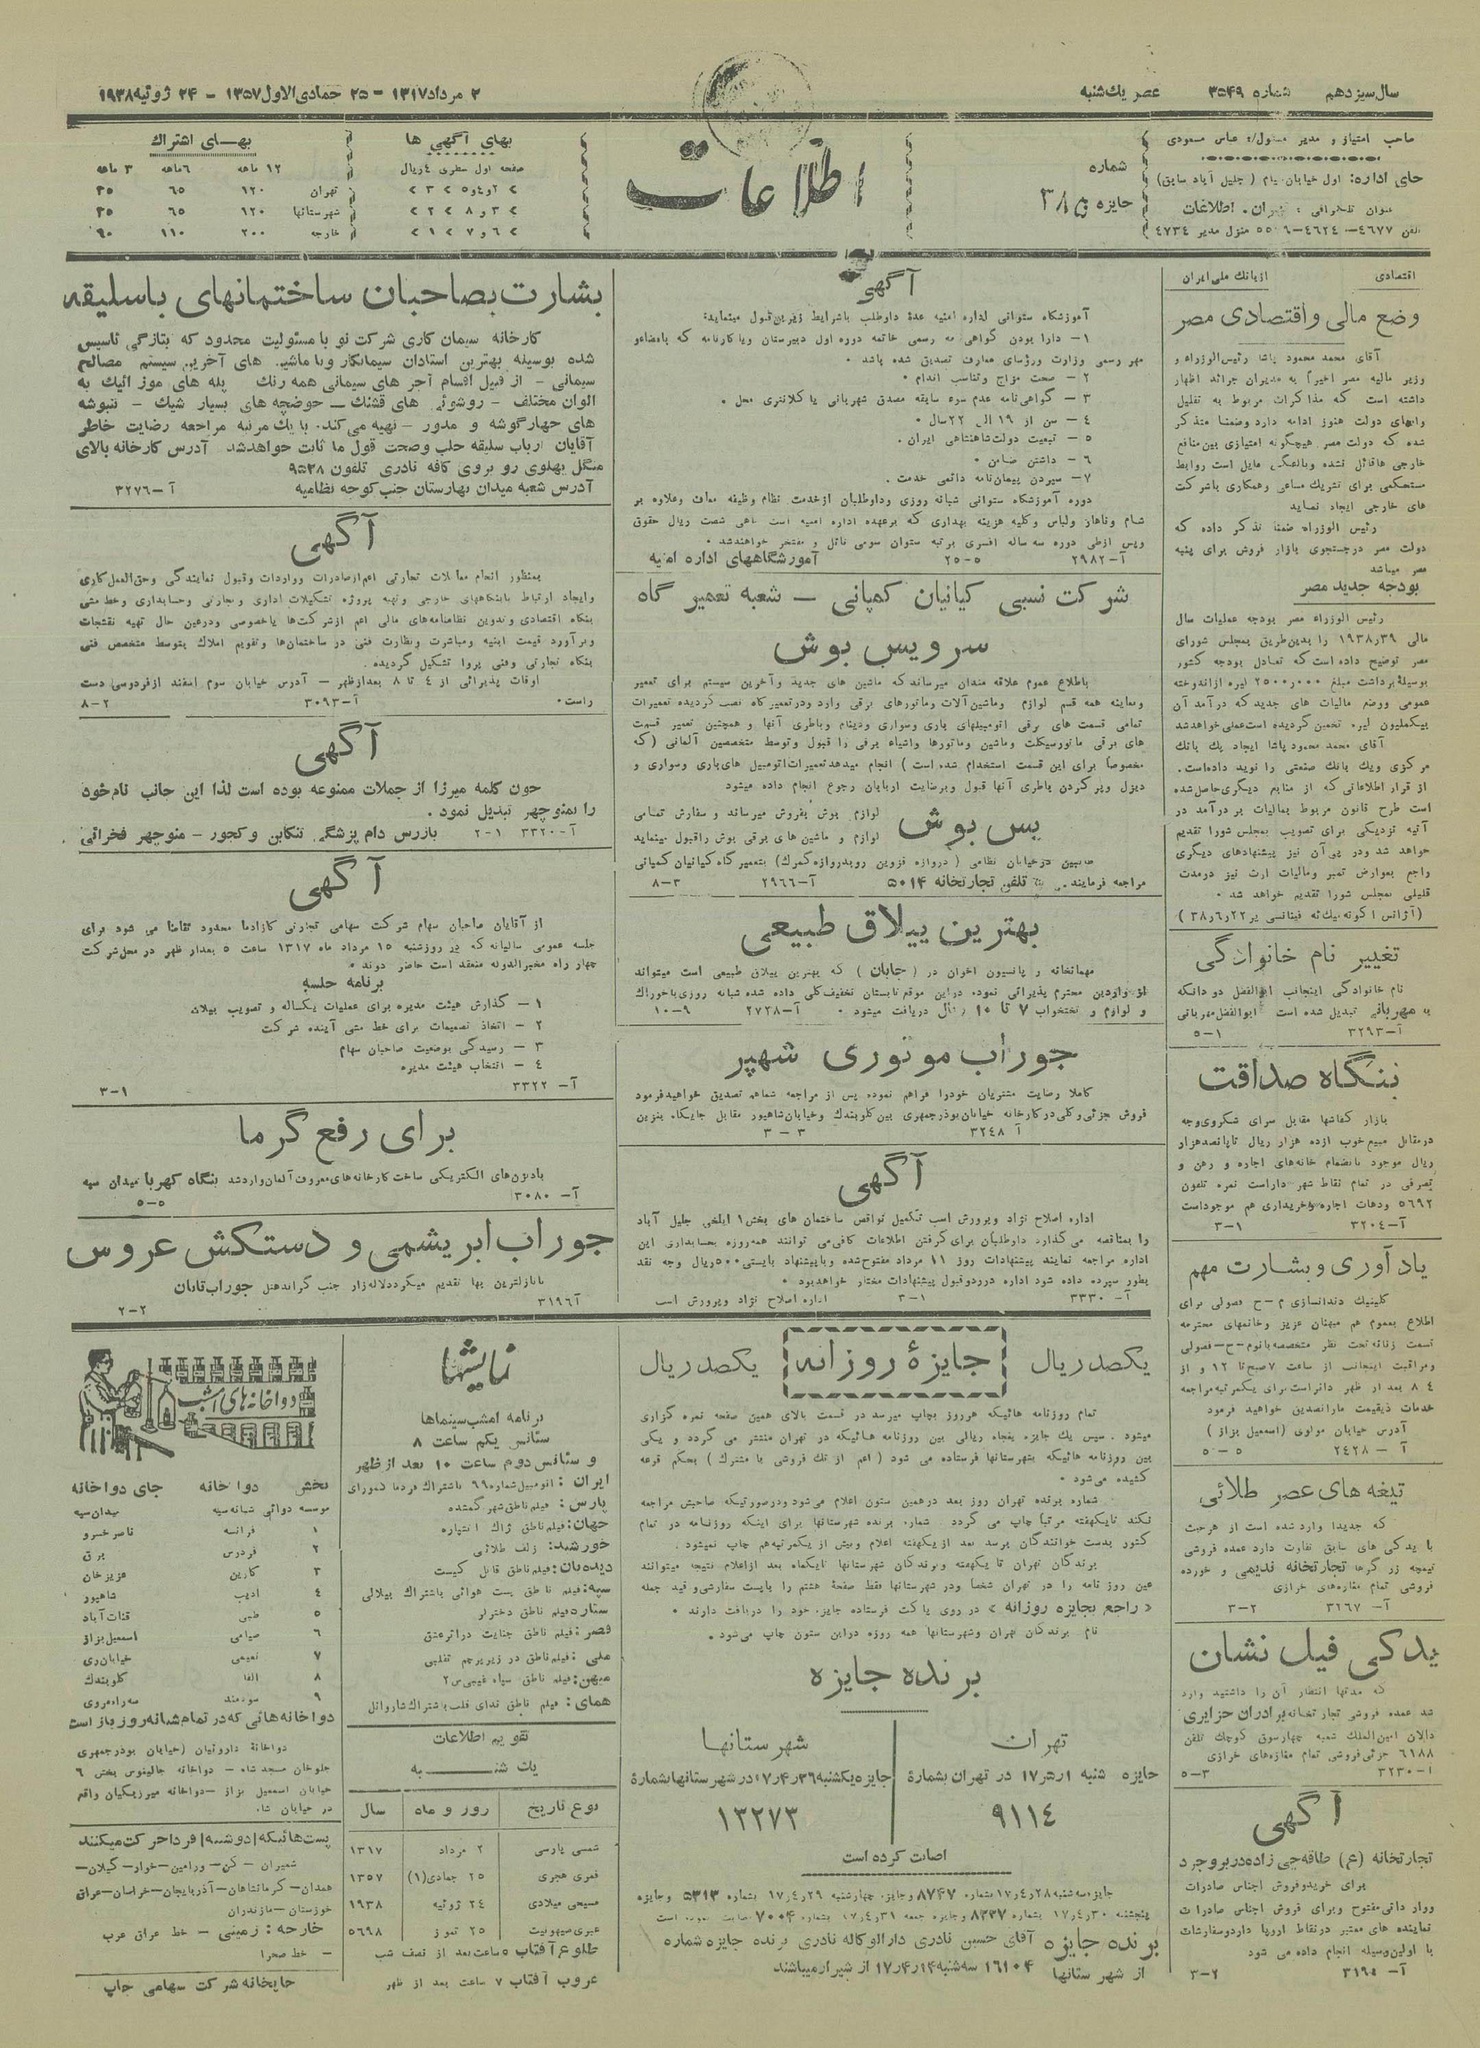 سال سیزدهم شماره ۳۵۴۹ عصر یك شنبه ۲ مرداد ۱۳۱۷ - ۲۵ جمادی الاول ۱۳۵۷ - ۲۴ ژوئیه ۱۹۳۸
صاحب امتیاز و مدیر مسئول: عباس مسعودی
عنوان تلگرافی: تهران. اطلاعات
شماره
جایزه
اطلاعات
بهای آگهی ها
صفحه اول سطری ٤ ریال
بهای اشتراك
۱۲ ماهه ۶ ماهه ۳ ماهه
تهران ۱۲۰ ۶۵ ۳۵
شهرستانها ۱۲۰ ۶۵ ۳۵
خارجه ۲۰۰ ۱۱۰ ۹۰
اقتصادی از بانك ملی ایران
وضع مالی و اقتصادی مصر
آقای محمد محمود پاشا رئیس الوزراء و
وزیر مالیه مصر اخیراً به مدیران جرائد اظهار
داشته است که مذاکرات مربوط به تقلیل
وامهای دولت هنوز ادامه دارد وضمناً متذکر
شده که دولت مصر هیچگونه امتیازی بین منافع
خارجی ها قائل نشده وبالعکس مایل است روابط
مستحکمی برای تشریك مساعی وهمکاری باشرکت
های خارجی ایجاد نماید
رئیس الوزراء ضمناً تذکر داده که
دولت مصر درجستجوی بازار فروش برای پنبه
مصر میباشد
بودجه جدید مصر
رئیس الوزراء مصر بودجه عملیات سال
مالی ۱۹۳۸ر۳۹ را بدین طریق بمجلس شورای
مصر توضیح داده است که تعادل بودجه کشور
عمومی ووضع مالیات های جدید که درآمد آن
بیکملیون لیره تخمین گردیده است عملی خواهد شد
آقای محمد محمود پاشا ایجاد یك بانك
مرکزی ویك بانك صنعتی را نوید داده است.
از قرار اطلاعاتی که از منابع دیگری حاصل شده
است طرح قانون مربوط بمالیات بر درآمد در
آتیه نزدیکی برای تصویب بمجلس شورا تقدیم
خواهد شد ودر پی آن نیز پیشنهادهای دیگری
راجع بعوارض تمبر ومالیات ارث نیز درمدت
قلیلی بمجلس شورا تقدیم خواهد شد.
تغییر نام خانوادگی
نام خانوادگی اینجانب ابوالفضل دو دانگه
به مهربانی تبدیل شده است ابوالفضل مهربانی
آ-۳۲۹۳ ۱-۵
بنگاه صداقت
بازار کفاشها مقابل سرای شکرویوجه
ریال موجود بانضمام خانه های اجاره و رهن و
تصرفی در تمام نقاط شهر داراست نمره تلفون
۵۶۹۲ ودهات اجاره وخریداری هم موجود است
آ-۳۲۰٤ ۱-۳
یادآوری و بشارت مهم
کلینیك دندانسازی م-ح فصولی برای
اطلاع بعموم هم میهنان عزیز وخانمهای محترمه
قسمت زنانه تحت نظر متخصصه بانوم-ح-فصولی
ومراقبت اینجانب از ساعت ۷ صبح تا ۱۲ و از
٤ تا ۸ بعد از ظهر دائر است برای یکمرتبه مراجعه
خدمات ذیقیمت ما را تصدیق خواهید فرمود
آدرس خیابان مولوی (اسمعیل بزاز)
آ-۲٤۲۸ ۵-۵
تیغه های عصر طلائی
که جدیداً وارد شده است از هر حیث
با یدکی های سابق تفاوت دارد عمده فروشی
تیمچه زرگرها تجارتخانه قدیمی و خورده
فروشی تمام مغازه های خرازی
آ-۳۱۶۷ ۲-۳
یدکی فیل نشان
که مدتها انتظار آن را داشتید وارد
شد عمده فروشی تجارتخانه برادران جزایری
دالان امین الملك شعبه چهارسوق کوچك تلفن
۶۱۸۸ جزئی فروشی تمام مغازه های خرازی
آ-۳۲۳۰ ۳-۵
آگهی
تجارتخانه (ع) طاقه چی زاده در بروجرد
برای خرید وفروش اجناس صادرات
ووارداتی مفتوح وبرای فروش اجناس صادرات
نماینده های معتبر در نقاط اروپا دارد وسفارشات
با اولین وسیله انجام داده می شود
۲-۳
آگهی
آموزشگاه ستوانی اداره امنیه عدهٔ داوطلب باشرایط زیرین قبول مینماید:
۱- دارا بودن گواهی نامه رسمی خاتمه دوره اول دبیرستان ویا کارنامه که بامضاء و
مهر رسمی وزارت ویا رؤسای معارف تصدیق شده باشد.
۲- صحت مزاج وتناسب اندام.
۳- گواهی نامه عدم سوء سابقه مصدق شهربانی یا کلانتری محل.
٤- سن از ۱۹ الی ۲۲ سال.
۵- تبعیت دولت شاهنشاهی ایران.
۶- داشتن ضامن.
۷- سپردن پیمان نامه دائمی خدمت.
دوره آموزشگاه ستوانی شبانه روزی وداوطلبان ازخدمت نظام وظیفه معاف وعلاوه بر
شام وناهار ولباس وکلیه هزینه بهداری که برعهده اداره امنیه است ماهی شصت ریال حقوق
وپس ازطی دوره سه ساله افسری برتبه ستوان سومی نائل و مفتخر خواهند شد.
آ-۲۹۸۲ ۵-۲۵ آموزشگاههای اداره امنیه
شرکت نسبی کیانیان کمپانی - شعبه تعمیر گاه
سرویس بوش
باطلاع عموم علاقه مندان میرساند که ماشین های جدید وآخرین سیستم برای تعمیر
ومعاینه همه قسم لوازم وماشین آلات وماتورهای برقی وارد ودرتعمیرگاه نصب گردیده تعمیرات
تمامی قسمت های برقی اتومبیلهای باری وسواری ودینام وباطری آنها و همچنین تعمیر قسمت
های برقی ماتورسیکلت وماشین وماتورها واشیاء برقی را قبول وتوسط متخصصین آلمانی (که
مخصوصاً برای این قسمت استخدام شده است) انجام میدهد تعمیرات اتومبیل های باری وسواری و
دیزل وپر کردن باطری آنها قبول وبرضایت اربابان رجوع انجام داده میشود
پس بوش
لوازم بوش بفروش میرساند و سفارش تمامی
لوازم و ماشین های برقی بوش را قبول مینماید
طالبین در خیابان نظامی (دروازه قزوین روبدروازه گمرك) بتعمیرگاه کیانیان کمپانی
مراجعه فرمایند. تلفن تجارتخانه ۵۰۱٤ آ-۲۹۶۶ ۳-۸
بهترین ییلاق طبیعی
مهمانخانه و پانسیون اخوان در (جابان) که بهترین ییلاق طبیعی است میتواند
از واردین محترم پذیرائی نمود. دراین موقع تابستان تخفیف کلی داده شده شبانه روزی باخوراك
و لوازم و تختخواب ۷ تا ۱۰ ریال دریافت میشود. آ-۲۷۳۸ ۹-۱۰
جوراب موتوری شهپر
کاملاً رضایت مشتریان خود را فراهم نموده پس از مراجعه شما هم تصدیق خواهید فرمود
فروش جزئی وکلی درکارخانه خیابان بوذرجمهری بین گلوبندك وخیابان شاهپور مقابل جایگاه بنزین
آ ۳۲٤۸ ۳-۳
آگهی
اداره اصلاح نژاد وپرورش اسب تکمیل نواقص ساختمان های بخش ۱ ایلخی جلیل آباد
را بمناقصه می گذارد داوطلبان برای گرفتن اطلاعات کافی می توانند همه روزه بحسابداری این
اداره مراجعه نمایند پیشنهادات روز ۱۱ مرداد مفتوح شده وباپیشنهاد بایستی ۵۰۰ ریال وجه نقد
بطور سپرده داده شود اداره دررد وقبول پیشنهادات مختار خواهد بود.
آ-۳۳۳۰ ۱-۳ اداره اصلاح نژاد وپرورش اسب
بشارت بصاحبان ساختمانهای باسلیقه
کارخانه سیمان کاری شرکت نو با مسئولیت محدود که بتازگی تاسیس
شده بوسیله بهترین استادان سیمانکار وبا ماشین های آخرین سیستم مصالح
سیمانی - از قبیل اقسام آجر های سیمانی همه رنگ پله های موزائیك به
الوان مختلف - روشوئی های قشنگ - حوضچه های بسیار شیك - تنبوشه
های چهارگوشه و مدور - تهیه می کند. با یك مرتبه مراجعه رضایت خاطر
آقایان ارباب سلیقه جلب وصحت قول ما ثابت خواهد شد آدرس کارخانه بالای
منگل پهلوی رو بروی کافه نادری تلفون ۹۵۳۸
آدرس شعبه میدان بهارستان جنب کوچه نظامیه آ-۳۲۷۶
آگهی
بمنظور انجام معاملات تجارتی اعم ازصادرات وواردات وقبول نمایندگی وحق العمل کاری
وایجاد ارتباط بابنگاههای خارجی وتهیه پروژه تشکیلات اداری وتجارتی وحسابداری وخط مشی
بنگاه اقتصادی وتدوین نظامنامه های مالی اعم ازشرکت ها یا خصوصی ودرعین حال تهیه نقشجات
وبرآورد قیمت ابنیه ومباشرت ونظارت فنی در ساختمانها وتقویم املاك بتوسط متخصص فنی
بنگاه تجارتی وفنی پروا تشکیل گردیده.
اوقات پذیرائی از ٤ تا ۸ بعدازظهر - آدرس خیابان سوم اسفند ازفردوسی دست
راست. آ-۳۰۹۳ ۲-۸
آگهی
چون کلمه میرزا از جملات ممنوعه بوده است لذا این جانب نام خود
را بمنوچهر تبدیل نمود.
آ-۳۳۲۰ ۱-۲ بازرس دام پزشگی تنکابن و کجور - منوچهر فخرائی
آگهی
از آقایان صاحبان سهام شرکت سهامی تجارتی کازادما محدود تقاضا می شود برای
جلسه عمومی سالیانه که در روزشنبه ۱۵ مرداد ماه ۱۳۱۷ ساعت ۵ بعدازظهر در محل شرکت
چهار راه مخبرالدوله منعقد است حاضر شوند.
برنامه جلسه
۱- گذارش هیئت مدیره برای عملیات یکساله و تصویب بیلان
۲- اتخاذ تصمیمات برای خط مشی آینده شرکت
۳- رسیدگی بوضعیت صاحبان سهام
٤- انتخاب هیئت مدیره
آ-۳۳۲۲ ۱-۳
برای رفع گرما
بادبزن های الکتریکی ساخت کارخانه های معروف آلمان وارد شد بنگاه کهربا میدان سپه
آ-۳۰۸۰ ۵-۵
جوراب ابریشمی و دستکش عروس
بانازلترین بها تقدیم میگردد لاله زار جنب گراند هتل جوراب تابان
آ ۳۱۹۶ ۲-۲
یکصد ریال جایزهٔ روزانه یکصد ریال
تمام روزنامه هائیکه هر روز بچاپ میرسد در قسمت بالای همین صفحه نمره گزاری
میشود. سپس یك جایزه پنجاه ریالی بین روزنامه هائیکه در تهران منتشر می گردد و یکی
بین روزنامه هائیکه بشهرستانها فرستاده می شود (اعم از تك فروشی یا مشترك) بحکم قرعه
کشیده می شود.
شماره برنده تهران روز بعد درهمین ستون اعلام می شود ودرصورتیکه صاحبش مراجعه
نکند تا یکهفته مرتباً چاپ می گردد. شماره برنده شهرستانها برای اینکه روزنامه در تمام
کشور بدست خوانندگان برسد بعد از یکهفته اعلام وبیش از یکمرتبه هم چاپ نمیشود.
برندگان تهران تا یکهفته وبرندگان شهرستانها تا یکماه بعد ازاعلام نتیجه میتوانند
عین روزنامه را در تهران شخصاً ودر شهرستانها فقط صفحهٔ هشتم را بایست سفارشی وقید جمله
« راجع بجایزه روزانه » در روی پاکت فرستاده جایزه خود را دریافت دارند.
نام برندگان تهران وشهرستانها همه روزه دراین ستون چاپ می شود.
برنده جایزه
تهران
جایزه شنبه ۱ر۵ر۱۷ در تهران بشمارهٔ
۹۱۱٤
شهرستانها
جایزه یکشنبه ۲۶ر۴ر۱۷ در شهرستانها بشمارهٔ
۱۳۲۷۳
اصابت کرده است
جایزه سه شنبه ۲۸ر٤ر۱۷ بشماره ۸۷۴۷ وجایزه چهارشنبه ۲۹ر٤ر۱۷ بشماره ۵۳۱۳ وجایزه
پنجشنبه ۳۰ر٤ر۱۷ بشماره ۸۳۳۷ وجایزه جمعه ۳۱ر٤ر۱۷ بشماره ۷۰۰۴ اصابت نموده است
برنده جایزه از شهرستانها
آقای حسین نادری دارالوکاله نادری برنده جایزه شماره
۱۶۱۰۴ سه شنبه ۱۴ر۴ر۱۷ از شیراز میباشند
نمایشها
برنامه امشب سینماها
سئانس یکم ساعت ۸
و سئانس دوم ساعت ۱۰ بعد از ظهر
پارس: فیلم ناطق شهر گمشده
خورشید: زلف طلائی
دیده بان: فیلم ناطق قاتل کیست
سپه: فیلم ناطق پست هوائی باشتراك بیلالی
ستاره فیلم ناطق دختر لر
قصر: فیلم ناطق جنایت دراثر عشق
ملی: فیلم ناطق در زیر پرچم تقلبی
میهن: فیلم ناطق سپاه غیبی س۲
همای: فیلم ناطق ندای قلب باشتراك شاروانل
تقویم اطلاعات
یك شنبه
نوع تاریخ روز و ماه سال
شمسی پارسی ۲ مرداد ۱۳۱۷
قمری هجری ۲۵ جمادی (۱) ۱۳۵۷
مسیحی میلادی ۲٤ ژوئیه ۱۹۳۸
عبری صیهونیت ۲۵ تموز ۵۶۹۸
طلوع آفتاب ۵ ساعت بعد از نصف شب
غروب آفتاب ۷ ساعت بعد از ظهر
دواخانه های امشب
بخش دواخانه جای دواخانه
موسسه دوائی شبانه سپه میدان سپه
۱ فرانسه ناصر خسرو
۲ فردوس برق
۳ کارین عزیزخان
٤ ادیب شاهپور
۵ طبی قنات آباد
۶ صیامی اسمعیل بزاز
۷ نعیمی خیابان ری
۸ الفا گلوبندك
۹ سودمند سه راه مروی
دواخانه هائی که در تمام شبانه روز باز است
دواخانهٔ داروئیان (خیابان بوذرجمهری
جلوخان مسجد شاه - دواخانه جالینوس بخش ۶
خیابان اسمعیل بزاز - دواخانه میرزیگیان واقع
در خیابان شاه.
پست هائیکه (دوشنبه) فردا حرکت میکنند
شمیران - کن - ورامین - خوار - گیلان -
همدان - کرمانشاهان - آذربایجان - خراسان - عراق
خوزستان - مازندران
خارجه: زمینی - خط عراق عرب
- خط صحرا
چاپخانه شرکت سهامی چاپ